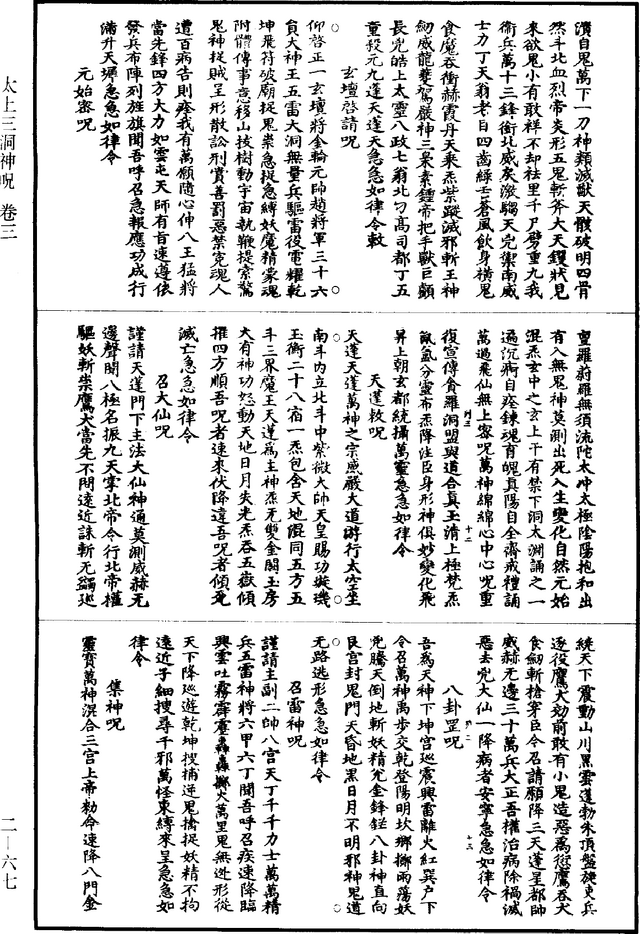 瀆自鬼萬下一刀神類滅獸天骸破明四骨
然斗北血烈帝炎形五鬼斬斧大天鑊狀見
來欲鬼小有敢祥不却祛里千尸劈重九我
衛兵萬十三鋒衝北威炭激騶天完禦南威
士力丁天翁老目四齒綠壬蒼風飲身橫鬼
食魔吞衝赫霞丹天乘炁紫蹤滅邪斬王神
劒威龍夔駕嚴神三梟素鍾帝把手獸巨顱
長兇皓上太靈八政七翁北刁高司都丁五
童殺元九逢天逢天急急如律令敕
玄壇啓請呪
仰啓正一玄壇將金輪元帥趙將軍三十六
員大神王五雷大洞無量兵驅雷役電耀乾
坤飛符破廟捉鬼祟急捉急縛妖魔精豪魂
附體傳事意移山拔樹動宇宙執鞭提索驚
鬼神捉賊呈形散訟刑賞善罰惡禁冤魂人
遭百病告則痊我有萬願隨心伸八王猛將
當先鋒四方大力如雲屯天師有旨速遵依
發兵布陣列旌旗聞吾呼召急報應功成行
滿升天墀急急如律令
元始密呪
亶羅蔚羅無須流陀太冲太極陰陽抱和出
有入無鬼神莫測出死入生變化自然元始
混炁玄中之玄上干有禁下洞太淵誦之一
遍沉疴自痊鍊魂育魄真陽自全齋戒禮誦
萬過飛仙無上密呪萬神綿綿心中心呪重
復宣傳貪羅洞盟與道合真玉清上極梵炁
氤氳分靈布炁降注臣身形神俱妙變化飛
昇上朝玄都統攝萬靈急急如律令
天蓬敕呪
天逢天逢萬神之宗威嚴大道游行太空坐
南斗内立北斗中紫微大帥天皇賜功璇璣
玉衡二十八宿一炁包含天地混同五方五
斗三界魔王天逢爲主神炁无雙金闕玉房
大有神功怒動天地日月失光炁吞五嶽傾
摧四方順吾呪者速來伏降違吾呪者傾死
滅亡急急如律令
召大仙呪
謹請天逢門下主法大仙神通莫測威赫无
邊聲聞八極名振九天掌北帝令行北帝權
驅妖斬祟鷹犬當先不問遠近誅斬无蠲巡
統天下震動山川黑雲蓬勃朱頂盤旋吏兵
逐役鷹犬効前敢有小鬼造惡爲愆鷹吞犬
食劒斬槍穿臣今召請願降三天逢呈都帥
威赫无邊三十萬兵大正吾權治病除禍滅
惡去兇大仙一降病者安寧急急如律令
八卦罡呪
吾爲天神下坤宮巡震興雷離火紅巽户下
令召萬神萬步交乾登陽明坎瑯擲雨蕩妖
兇騰天倒地斬妖精兌金鋒銼八卦神直向
艮宮封鬼門天昏地黑日月不明邪神鬼道
无路逃形急急如律令
召雷神呪
謹請主副二帥八宮天丁千千力士萬萬精
兵五雷神將六甲六丁聞吾呼召疾速降臨
興雲吐霧霹靂轟轟擲火萬里鬼無迯形從
天下降巡遊乾坤搜捕逆鬼擒捉妖精不拘
遠近子細搜尋千邪萬怪束縛來呈急急如
律令
集神呪
靈寶萬神混合三宮上帝勅命速降八門金
太上三洞神呪 卷三
二—六七